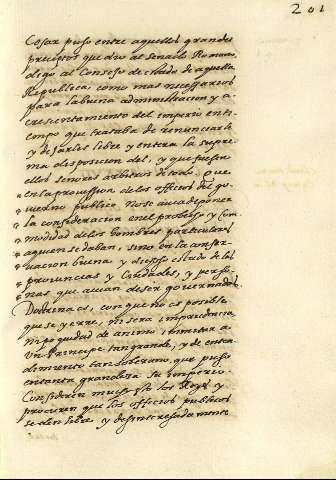 201
Cosar puso entre aquellos grandes
preceptos que dio al senado Romano
digo al Consejo de estado de aquella
Republica, como mas necessarios
para la buena administracion y a
crescentamiento del imperio en ti
empo que trataba de renunciarle
y dejarles libre y entera la supre
ma disposicion del, y que fuesen
ellos señores arbitros de todo. Que
en la provission de los officios del go
vierno publico. No se avia de poner
la consideracion en el probecho y com
modidad de los hombres particulares
a quien se daban, sino en la conser
vacion buena y dichoso estado de las
provincias y Ciudades, y perso
nas que avian de ser governadas.
Doctrina es, con que no es posible
que se yerre, ni sera imprudencia
ni poquedad de animo, imitar a
un Principe tan grande, y de enten
dimiento tan soberano que puso
en tanta grandeza su imperio.
Consideren mucho esto los Reyes y
procuren que los officios publicos
se den libre y desinteresadamente